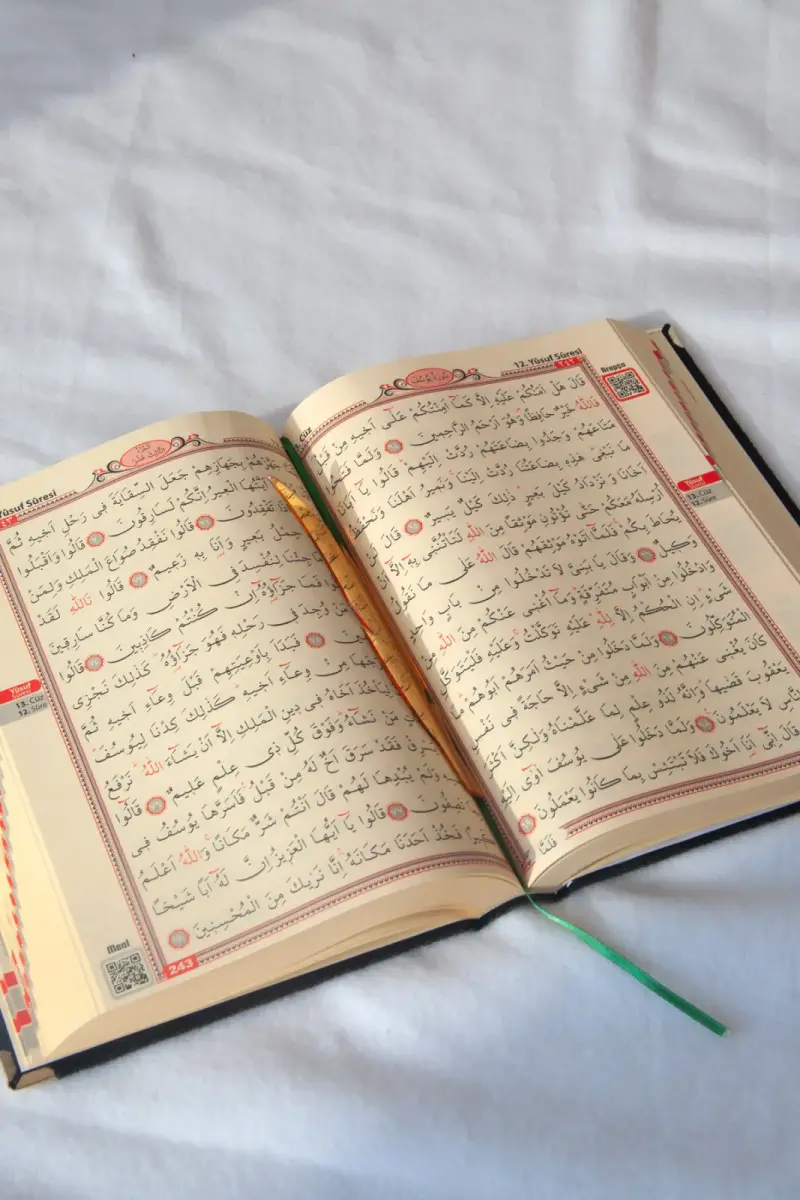 12. Yûsuf Sûresi
٢٤٢
سُورَةُ يُوسُفَ
Cüz
Arapça
قَالَ هَلْ اٰمَنُكُمْ عَلَيْهِ اِلَّا كَمَٓا اَمِنْتُكُمْ عَلٰٓى اَخ۪يهِ مِنْ قَبْلُ
فَاللّٰهُ خَيْرٌ حَافِظًا وَهُوَ اَرْحَمُ الرَّاحِم۪ينَ وَلَمَّا فَتَحُوا
مَتَاعَهُمْ وَجَدُوا بِضَاعَتَهُمْ رُدَّتْ اِلَيْهِمْ قَالُوا يَٓا اَبَانَا
مَا نَبْغ۪ي هٰذِه۪ بِضَاعَتُنَا رُدَّتْ اِلَيْنَا وَنَم۪يرُ اَهْلَنَا وَنَحْفَظُ
اَخَانَا وَنَزْدَادُ كَيْلَ بَع۪يرٍ ذٰلِكَ كَيْلٌ يَس۪يرٌ قَالَ لَنْ
اُرْسِلَهُ مَعَكُمْ حَتّٰى تُؤْتُونِ مَوْثِقًا مِنَ اللّٰهِ لَتَاْتُنَّن۪ي بِه۪ٓ اِلَّٓا اَنْ
يُحَاطَ بِكُمْ فَلَمَّٓا اٰتَوْهُ مَوْثِقَهُمْ قَالَ اللّٰهُ عَلٰى مَا نَقُولُ
وَك۪يلٌ وَقَالَ يَا بَنِيَّ لَا تَدْخُلُوا مِنْ بَابٍ وَاحِدٍ
وَادْخُلُوا مِنْ اَبْوَابٍ مُتَفَرِّقَةٍ وَمَٓا اُغْن۪ي عَنْكُمْ مِنَ اللّٰهِ مِنْ
شَيْءٍ اِنِ الْحُكْمُ اِلَّا لِلّٰهِ عَلَيْهِ تَوَكَّلْتُ وَعَلَيْهِ فَلْيَتَوَكَّلِ
الْمُتَوَكِّلُونَ وَلَمَّا دَخَلُوا مِنْ حَيْثُ اَمَرَهُمْ اَبُوهُمْ مَا
كَانَ يُغْن۪ي عَنْهُمْ مِنَ اللّٰهِ مِنْ شَيْءٍ اِلَّا حَاجَةً ف۪ي نَفْسِ
يَعْقُوبَ قَضٰيهَا وَاِنَّهُ لَذُو عِلْمٍ لِمَا عَلَّمْنَاهُ وَلٰكِنَّ اَكْثَرَ
النَّاسِ لَا يَعْلَمُونَ وَلَمَّا دَخَلُوا عَلٰى يُوسُفَ اٰوٰٓى اِلَيْهِ
قَالَ اِنّ۪ٓي اَنَا اَخُوكَ فَلَا تَبْتَئِسْ بِمَا كَانُوا يَعْمَلُونَ
فَلَمَّا
Yusuf
13. Cüz
12. Sûre
Yûsuf Sûresi
اَلْجُزْءُ الثَّالِثَ عَشَرَ
جَهَّزَهُمْ بِجَهَازِهِمْ جَعَلَ السِّقَايَةَ ف۪ي رَحْلِ اَخ۪يهِ ثُمَّ
اَيَّتُهَا الْع۪يرُ اِنَّكُمْ لَسَارِقُونَ قَالُوا وَاَقْبَلُوا
مَاذَا تَفْقِدُونَ قَالُوا نَفْقِدُ صُوَاعَ الْمَلِكِ وَلِمَنْ
حِمْلُ بَع۪يرٍ وَاَنَا بِه۪ زَع۪يمٌ قَالُوا تَاللّٰهِ لَقَدْ
مَا جِئْنَا لِنُفْسِدَ فِي الْاَرْضِ وَمَا كُنَّا سَارِق۪ينَ
فَمَا جَزَٓاؤُ۬هُٓ اِنْ كُنْتُمْ كَاذِب۪ينَ قَالُوا
مَنْ وُجِدَ ف۪ي رَحْلِه۪ فَهُوَ جَزَٓاؤُ۬هُ كَذٰلِكَ نَجْزِي
فَبَدَاَ بِاَوْعِيَتِهِمْ قَبْلَ وِعَٓاءِ اَخ۪يهِ ثُمَّ
مِنْ وِعَٓاءِ اَخ۪يهِ كَذٰلِكَ كِدْنَا لِيُوسُفَ
لِيَاْخُذَ اَخَاهُ ف۪ي د۪ينِ الْمَلِكِ اِلَّٓا اَنْ يَشَٓاءَ اللّٰهُ نَرْفَعُ
مَنْ نَشَٓاءُ وَفَوْقَ كُلِّ ذ۪ي عِلْمٍ عَل۪يمٌ قَالُٓوا
فَقَدْ سَرَقَ اَخٌ لَهُ مِنْ قَبْلُ فَاَسَرَّهَا يُوسُفُ ف۪ي
وَلَمْ يُبْدِهَا لَهُمْ قَالَ اَنْتُمْ شَرٌّ مَكَانًا وَاللّٰهُ اَعْلَمُ
تَصِفُونَ قَالُوا يَٓا اَيُّهَا الْعَز۪يزُ اِنَّ لَهُٓ اَبًا شَيْخًا
فَخُذْ اَحَدَنَا مَكَانَهُ اِنَّا نَرٰيكَ مِنَ الْمُحْسِن۪ينَ
Yûsuf
13. Cüz
12. Sûre
Meal
243